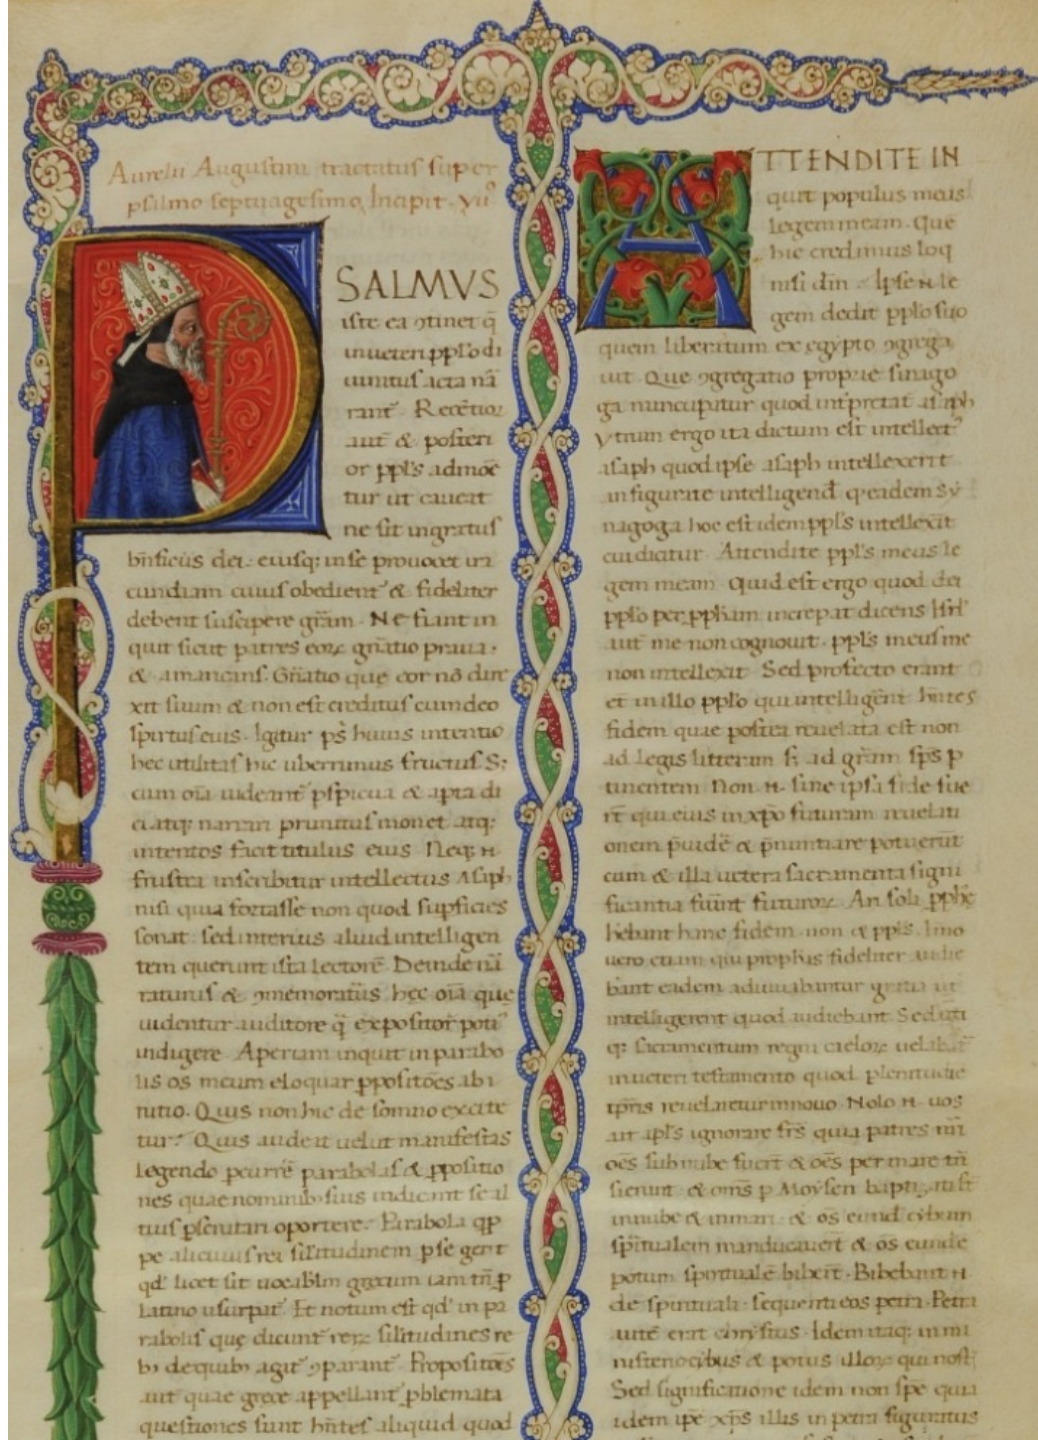 Aurelii Augustini tractatus super
psalmo septuagesimo Incipit vii°
PSALMVS
iste ea ꝯtinet q̄
in ueteri pplo di
uinitus acta nā
rant̄ Recētior
aut̄ & posteri
or ppls admoē
tur ut caueat
ne sit ingratus
bn̄ficiis dei: eiusq; in se prouocet ira
cundiam cuius obedient̄ & fideliter
debent suscipere grām. Ne fiant in
quit sicut patres eoꝝ gn̄atio praua:
& amaricans. Gn̄atio quę cor nō dire
xit suum & non est creditus cum deo
spiritus eius. Igitur ps̄ huius intentio
hec utilitas hic uberrimus fructus. S;
cum oīa uideant̄ pspicua & apta di
ci atq; narrari primitus monet atq;
intentos facit titulus eius Neq; n̄
frustra inscribitur intellectus Asaph
nisi quia fortasse non quod supficies
sonat: sed interius aliud intelligen
tem querunt ista lectorē. Deinde nā
raturus & ꝯmemoraturus hęc oīa que
uidentur auditore q̄ expositor poti᾽
indigere Aperiam inquit in parabo
lis os meum eloquar ꝓpositōes ab i
nitio. Quis non hic de somno excite
tur? Quis audeat uelut manifestas
legendo ꝑcurrē parabolas & ꝓpositio
nes quae nominib; suis indicant se al
tius pscrutari oportere. Parabola qp
pe alicuius rei sil̄itudinem p se gerit
qd licet sit uocabl̄m grecum iam tn̄ ꝓ
latino usurpat̄ Et notum est qd in pa
rabolis quę dicunt̄ reꝝ sil̄itudines re
b; de quib; agit̄ ꝯparant̄ Propositōes
aut̄ quae grece appellant̄ ꝓblemata
questiones sunt hn̄tes aliquid quod
ATTENDITE IN
quit populus meus
legem meam. Quē
hic credimus loq
nisi dīn Ipse n̄ le
gem dedit pplo suo
quem liberatum ex egypto ꝯgrega
uit Que ꝯgregatio proprie sinago
ga nuncupatur quod intp̄retat̄ asaph
Vtrum ergo ita dictum est intellect᾽
asaph quod ipse asaph intellexerit
an figurate intelligend̄ q eadem Sy
nagoga hoc est idem ppls intellexit
cui dicitur Attendite ppls meus le
gem meam Quid est ergo quod dei
pplo per ppham increpat dicens Isrl̄
aut̄ me non cognouit ppls meus me
non intellexit Sed profecto erant
et in illo pplo qui intelligēnt hn̄tes
fidem quae postea reuelata est non
ad legis litteram s; ad grām sps p
tinentem Non n̄ sine ipsa fide fue
rt̄ qui eius in xp̄o futuram reuelati
onem p̄uidē & p̄nuntiare potuerūt
cum & illa uetera sacramenta signi
ficantia fuint futuroꝝ. An soli ꝓphe
hebant hanc fidem non & ppls. Imo
uero etiam qui prophas fideliter audie
bant eadem adiuuabantur gratia ut
intelligerent quod audiebant Sed uti
q; sacramentum regni caeloꝝ uelabat̄
in ueteri testamento quod plenitudie
tp̄ris reuelaretur in nouo. Nolo n̄ uos
ait apls ignorare frs̄ quia patres nr̄i
oēs sub nube fuert̄ & oēs per mare tn̄
sierunt & omēs p Moysen baptizati st̄
in nube & in mari & oēs eund cibum
spiritualem manducauert̄ & oēs eundē
potum spiritualē bibert̄. Bibebant n̄
de spirituali sequenti eos petra. Petra
autē erat christus Idem itaq; in mi
nisterio cibus & potus illoꝝ qui nost̄
Sed significatione idem non spē quia
idem ipē xp̄s illis in petra figuratus